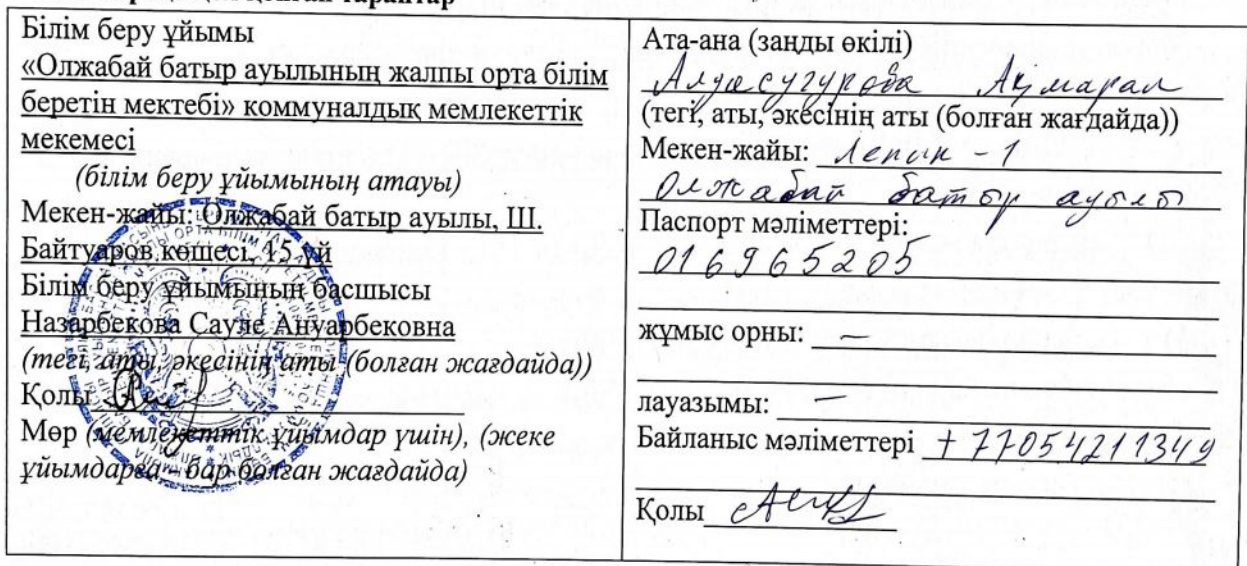 тараптар
Білім беру ұйымы
«Олжабай батыр ауылының жалпы орта білім
беретін мектебі» коммуналдық мемлекеттік
мекемесі
(білім беру ұйымының атауы)
Мекен-жайы: Олжабай батыр ауылы, Ш.
Байтуаров көшесі, 15 үй
Білім беру ұйымының басшысы
Назарбекова Сауле Ануарбековна
(тегі, аты, әкесінің аты (болған жағдайда))
Қолы
Мөр (мемлекеттік ұйымдар үшін), (жеке
ұйымдарға - бар болған жағдайда)
Ата-ана (заңды өкілі)
Ақмарал
(тегі, аты, әкесінің аты (болған жағдайда))
Мекен-жайы: Ленин 1
Олжабай батыр ауылы
Паспорт мәліметтері:
016965205
жұмыс орны: —
лауазымы: —
Байланыс мәліметтері +77054211349
Қолы